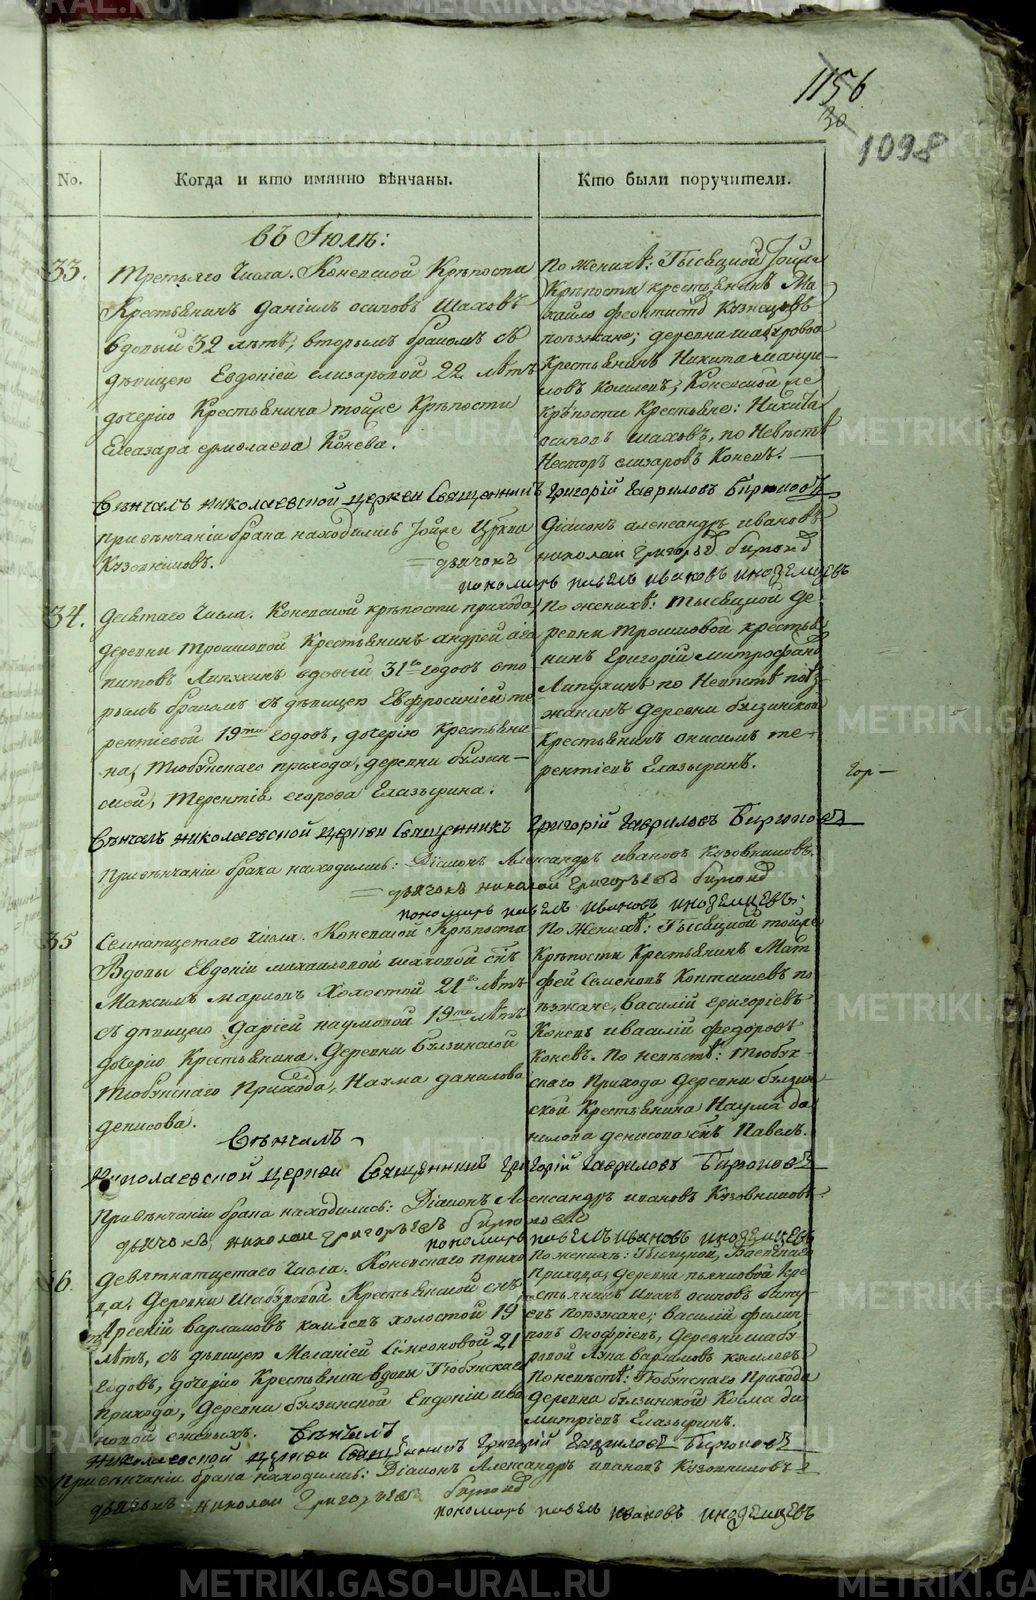 1156
30
1098
No.
Когда и кто имянно вѣнчаны.
Кто были поручители.
въ Іюлѣ:
33.
Третьяго Числа. Коневской Крѣпости
Крестьянинъ Даніилъ осиповъ Шаховъ
вдовый 32 лѣтъ, вторымъ бракомъ съ
дѣвицею Евдокіею елизаровой 22 лѣтъ
дочерію Крестьянина тойже Крѣпости
Елеазара ермолаева Конева.
По женихѣ: Тысяцкой тойже
Крѣпости крестьянинъ Ми
хайло Кузнецовъ
поезжане; деревни шабуровой
Крестьянинъ Никита
ловъ комлевъ; Коневской же
крѣпости Крестьяне: Никита
осиповъ шаховъ, по Невѣстѣ
Несторъ елизаровъ Коневъ.
Вѣнчалъ николаевской церкви Священникъ Григорій Гавриловъ Бирюковъ
при вѣнчаніи брака находились тойже Церкви Діаконъ александръ ивановъ
Кузовниковъ. дьячокъ николай Григорьевъ бирюковъ
пономарь павелъ ивановъ иноземцевъ
34.
Девятаго Числа. Коневской крѣпости прихода,
деревни Трошковой Крестьянинъ андрей ага
питовъ Лапухинъ вдовый 31го годовъ вто
рымъ бракомъ съ дѣвицею Евфросиніей те
рентіевой 19ти годовъ, дочерію Крестьяни
на, Тюбукскаго прихода, деревни булзин–
ской, Терентія егорова Глазырина.
По женихѣ: тысяцкой де
ревни трошковой крестья
нинъ Григорій митрофановъ
Лапухинъ по Невѣстѣ поѣз
жанинъ деревни булзинской
Крестьянинъ онисимъ те–
рентіевъ Глазыринъ.
Гор –
Вѣнчалъ николаевской церкви Священникъ Григорій Гавриловъ Бирюковъ
При вѣнчаніи брака находились: Діаконъ Александръ ивановъ Кузовниковъ.
дьячокъ николай Григорьевъ бирюковъ
пономарь павелъ ивановъ иноземцевъ.
35
Семнатцетаго Числа. Коневской Крѣпости
Вдовы Евдокіи михайловой шаховой сынъ
Максимъ Холостой 21го лѣтъ
съ дѣвицею Даріей наумовой 19ти лѣтъ
дочерію Крестьянина Деревни Булзинской
Тюбукскаго Прихода, Наума данилова
денисова.
По Женихѣ: Тысяцкой тойже
Крѣпости Крестьянинъ Мат
фей Семеновъ по
ѣзжане, Василій григоріевъ
Коневъ и василій федоровъ
коневъ. По невѣстѣ: тюбук
скаго Прихода деревни булзин
ской Крестьянина Наума да
нилова денисова сынъ Павелъ.
Вѣнчалъ
николаевской церкви Священникъ Григорій Гавриловъ Бирюковъ
При вѣнчаніи брака находились: Діаконъ Александръ ивановъ Кузовниковъ
дьячокъ николай Григорьевъ бирюковъ
пономарь павелъ ивановъ иноземцевъ
36.
Девятнатцетаго Числа. Коневскаго прихо
да, Деревни Шабуровой Крестьянской сынъ
Арсеній варламовъ комлевъ холостой 19
лѣтъ, съ дѣвицею Меланіей Симеоновой 21
годовъ, дочерію Крестьянки вдовы Тюбукскаго
прихода, Деревни булзинской Евдокіи ива
новой
По женихѣ: тысяцкой,
прихода, Деревни Кре
стьянинъ Иванъ осиповъ
поѣзжане; василій филип
повъ онофріевъ, Деревни шабу
ровой Лука варламовъ комлевъ
По невѣстѣ: Тюбукскаго Прихода
деревни булзинской Косма ди
митріевъ Глазыринъ.
Вѣнчалъ
николаевской церкви Священникъ Григорій Гавриловъ Бирюковъ
При вѣнчаніи брака находились: Діаконъ Александръ ивановъ Кузовниковъ
дьячокъ николай Григорьевъ бирюковъ
пономарь павелъ ивановъ иноземцевъ
METRIKI.GASO-URAL.RU